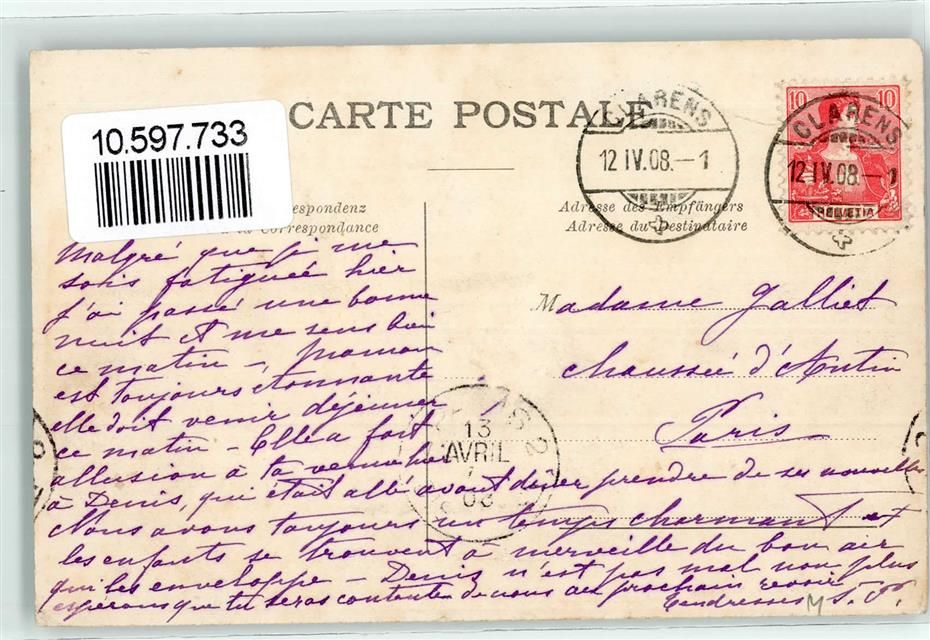 10.597.733
CARTE POSTALE
CLARENS
12 IV.08.-1
10 10
CLARENS
12 IV.08.-1
HELVETIA
respondenz
Correspondance
Adresse des Empfängers
Adresse du Destinataire
Malgré que je me
sois fatiguée hier
j'ai passé une bonne
nuit et me sens bien
ce matin -, maman
est toujours étonnante
elle doit venir déjeuner
ce matin - Elle a fait
allusion à ta venue
à Denis, qui était allé avant dîner prendre de ses nouvelles
Nous avons toujours un temps charmant et
les enfants se trouvent à merveille du bon air
qui les enveloppe - Denis n'est pas mal non plus
espérons que tu seras contente de nous au prochain revoir
Tendresses
Madame Galliet
chaussée d'Antin
Paris
13
AVRIL
08